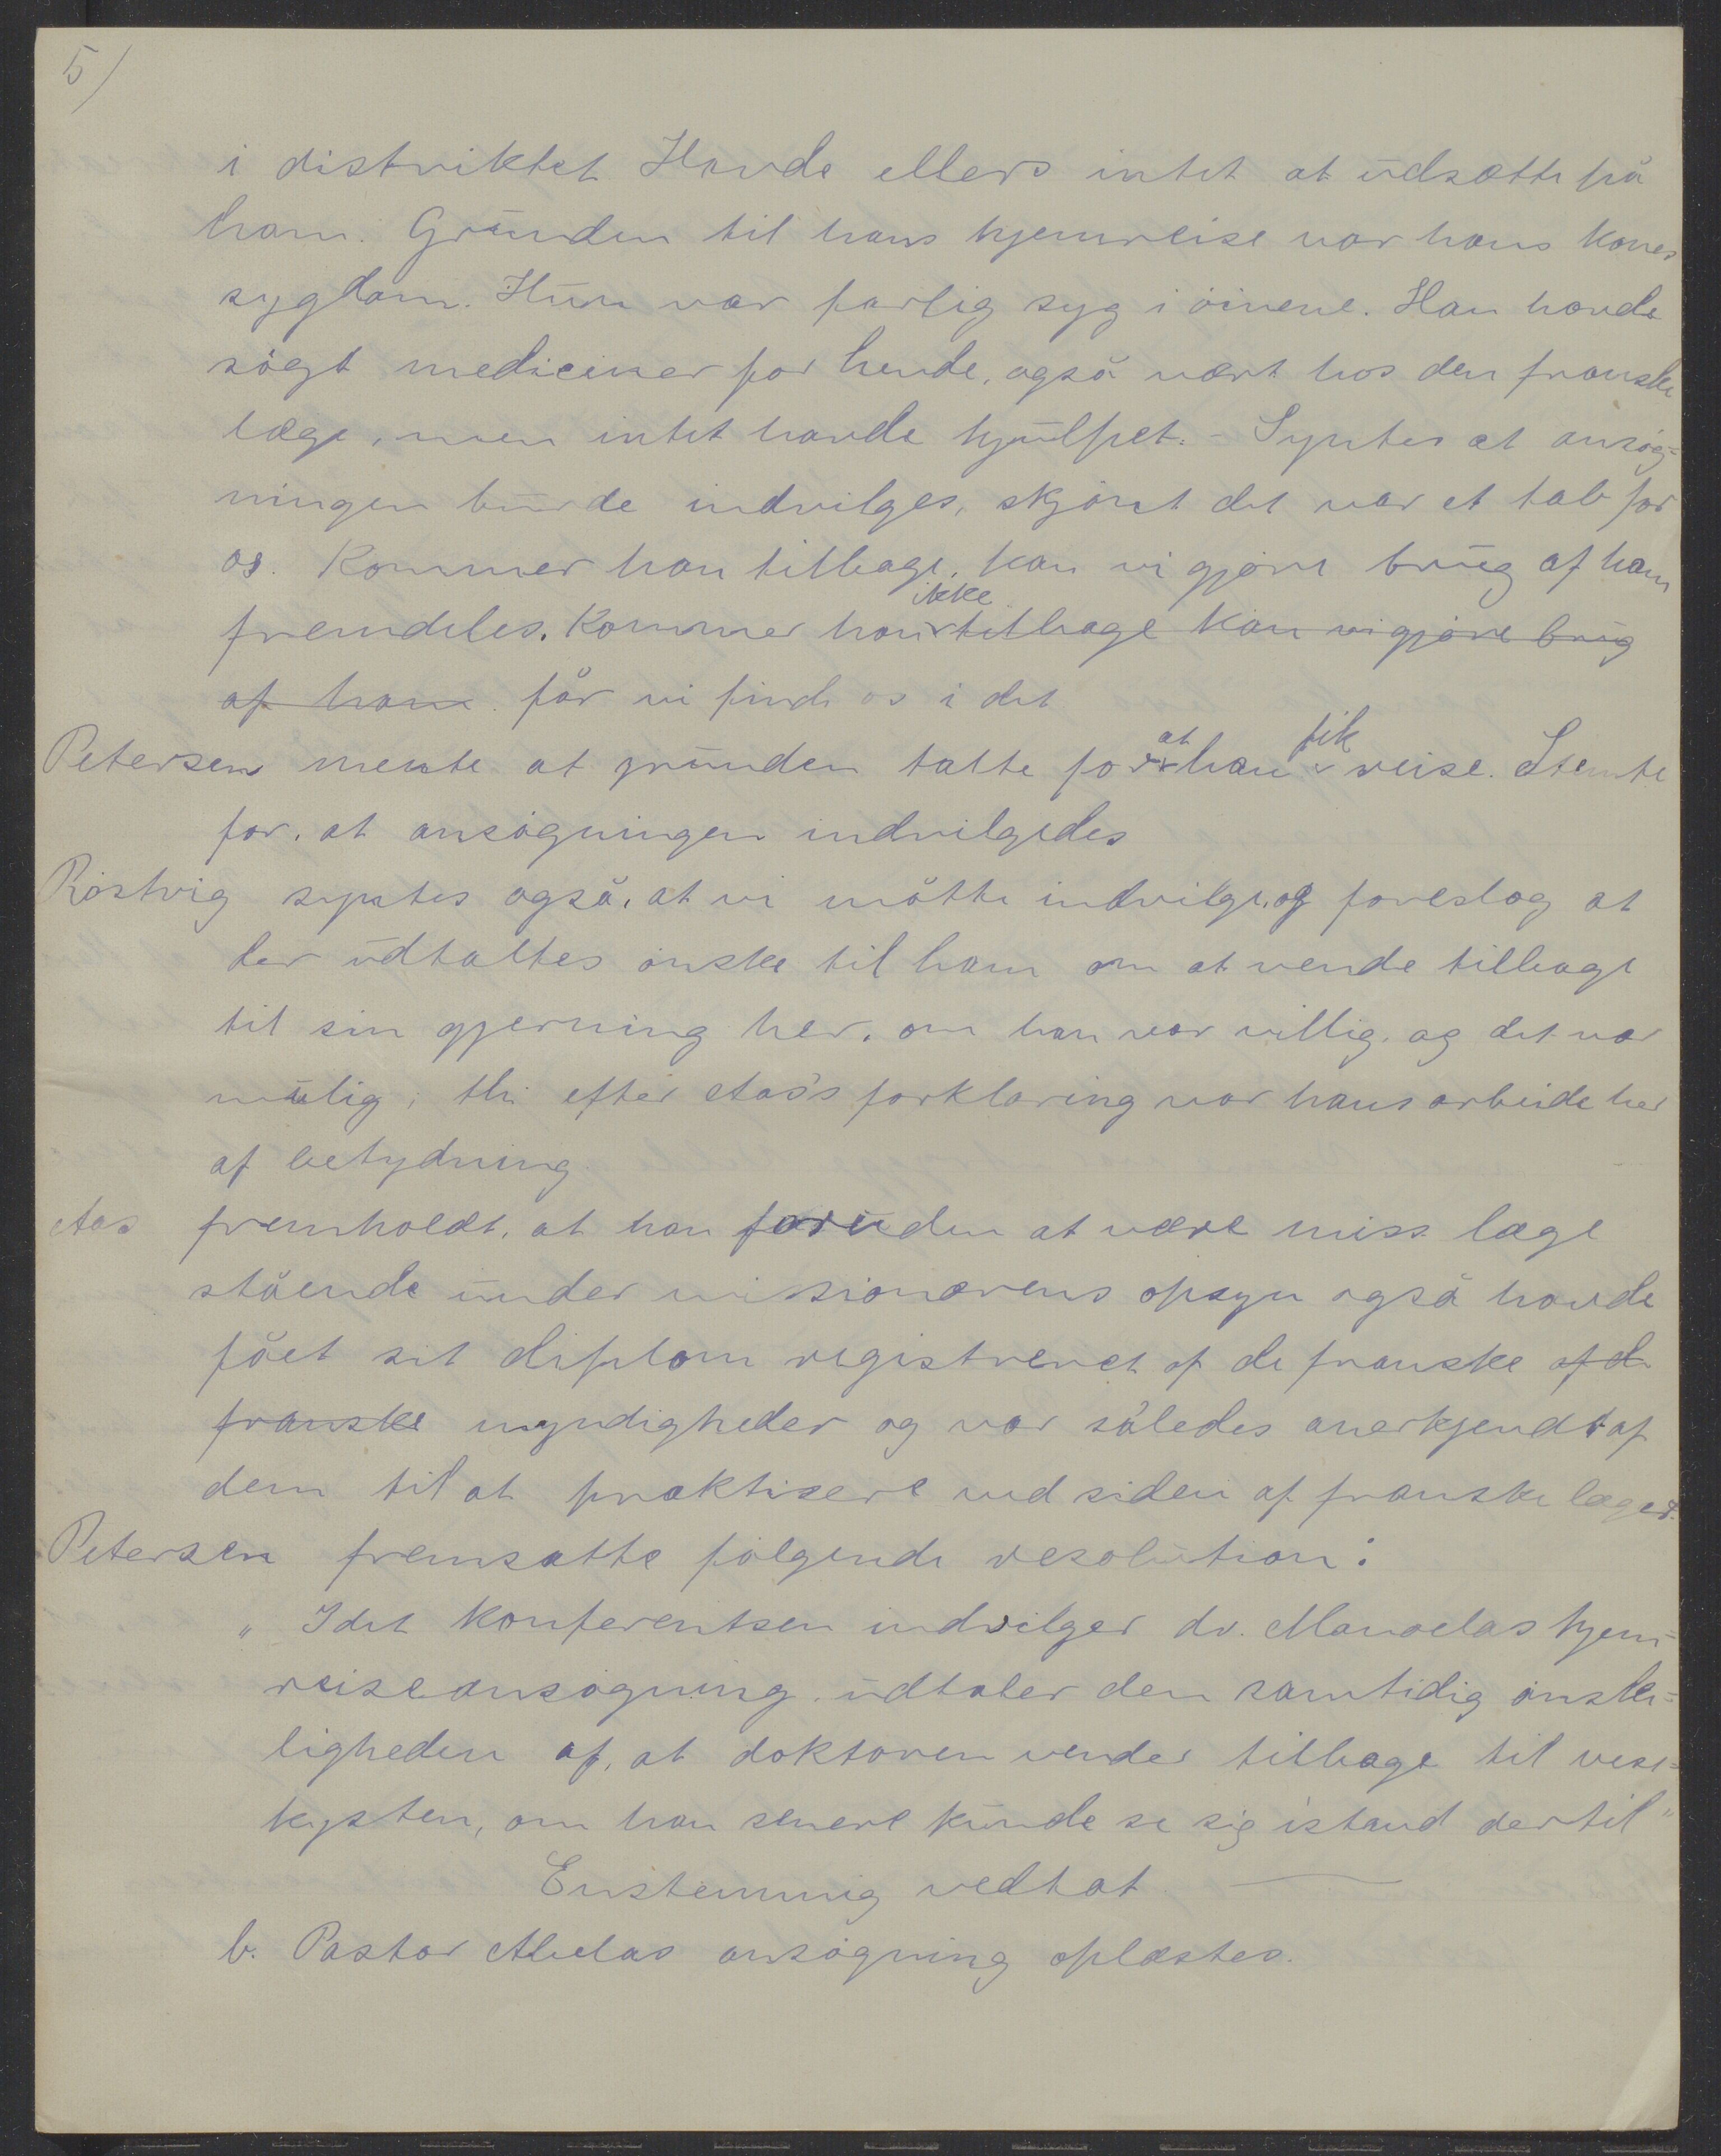 5/
i distriktet Havde ellers intet at udsætte på
ham. Grunden til hans hjemreise var hans kones
sygdom. Hun var farlig syg i öinene. Han havde
sögt mediciner for hende, også vært hos den franske
læge, men intet havde hjulpet. - Syntes at ansög-
ningen burde indvilges, skjönt det var et tab for
os. Kommer han tilbage, kan vi gjöre brug af ham
fremdeles. Kommer han ikke tilbage kan vi gjöre brug
af ham får vi finde os i det
Petersen mente at grunden talte for at han fik reise. Stemte
for, at ansögningen indvilgedes
Röstvig syntes også, at vi måtte indvilge, og foreslog at
der udtaltes önske til ham om at vende tilbage
til sin gjerning her, om han var villig, og det var
mulig; thi efter Aas's forklaring var hans arbeide her
af betydning.
Aas fremholdt, at han foruden at være miss. læge
stående under missionærens opsyn også havde
fået sit diplom registreret af de franske af de
franske myndigheder og var således anerkjendt af
dem til at praktisere ved siden af franske læger.
Petersen fremsatte fölgende resolution:
„Idet Konferentsen indvilger dr. Manoelas hjem-
reiseansögning, udtaler den samtidig önske-
ligheden af, at doktoren vender tilbage til vest-
kysten, om han senere kunde se sig istand dertil"
Enstemmig vedtat.
b. Pastor Abelas ansögning oplæstes.